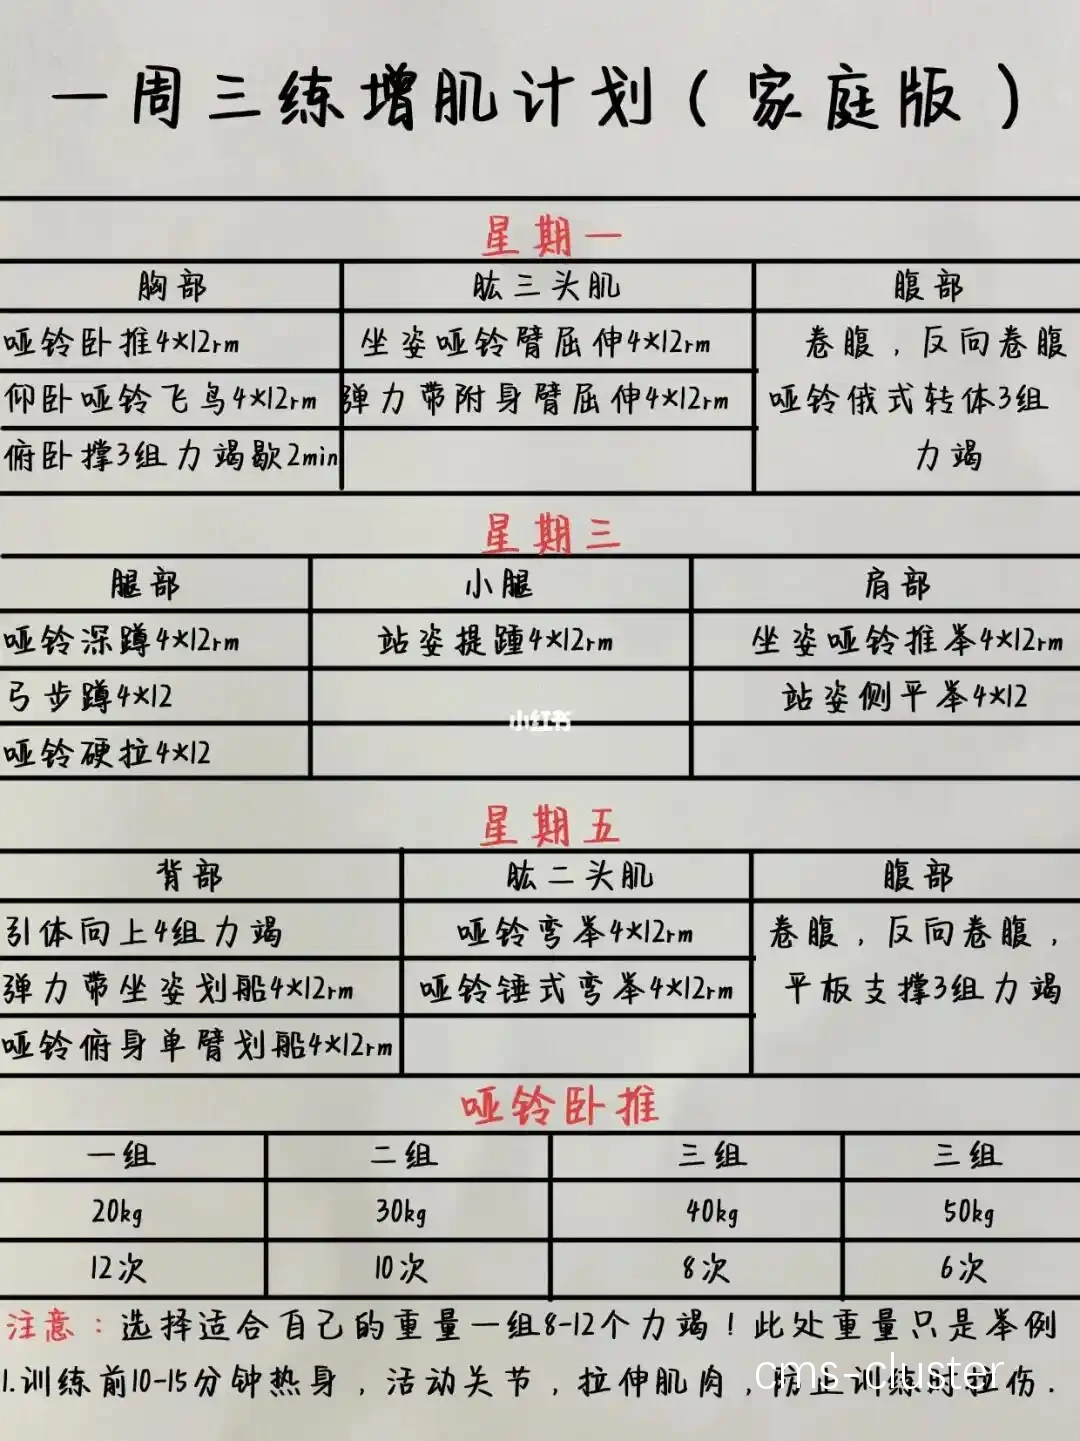 一周三练增肌计划(家庭版)
星期一
胸部 肱三头肌 腹部
哑铃卧推4*12rm 坐姿哑铃臂屈伸4*12rm 卷腹,反向卷腹
仰卧哑铃飞鸟4*12rm 弹力带附身臂屈伸4*12rm 哑铃俄式转体3组
俯卧撑3组力竭歇2min 力竭
星期三
腿部 小腿 肩部
哑铃深蹲4*12rm 站姿提踵4*12rm 坐姿哑铃推举4*12rm
弓步蹲4*12 站姿侧平举4*12
小红书
哑铃硬拉4*12
星期五
背部 肱二头肌 腹部
引体向上4组力竭 哑铃弯举4*12rm 卷腹,反向卷腹,
弹力带坐姿划船4*12rm 哑铃锤式弯举4*12rm 平板支撑3组力竭
哑铃俯身单臂划船4*12rm
哑铃卧推
一组 二组 三组 三组
20kg 30kg 40kg 50kg
12次 10次 8次 6次
注意:选择适合自己的重量一组8-12个力竭!此处重量只是举例
1.训练前10-15分钟热身,活动关节,拉伸肌肉,防止训练时拉伤.
cms-cluster